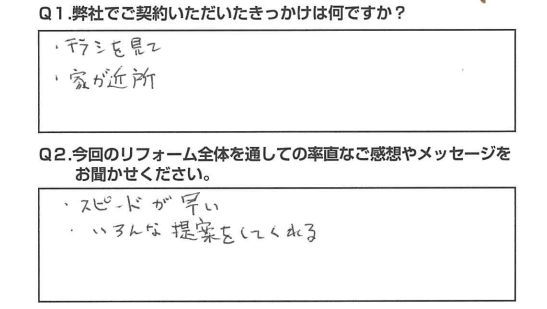 Q1.弊社でご契約いただいたきっかけは何ですか？
・チラシを見て
・家が近所
Q2.今回のリフォーム全体を通しての率直なご感想やメッセージを
お聞かせください。
・スピードが早い
・いろんな提案をしてくれる